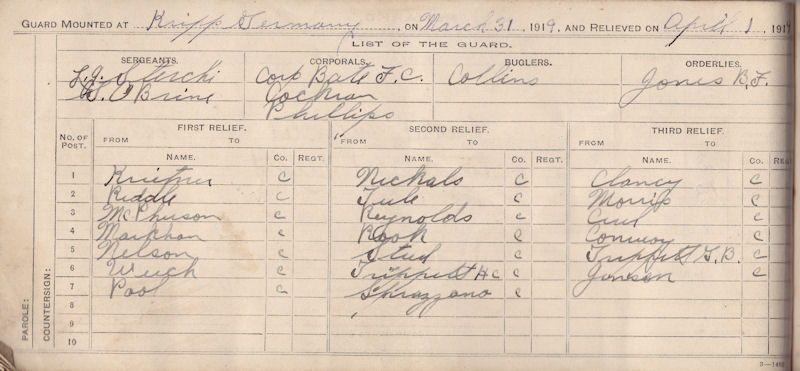 GUARD MOUNTED AT Kripp Germany, ON March 31, 1919, AND RELIEVED ON April 1, 191
LIST OF THE GUARD.
SERGEANTS. CORPORALS. BUGLERS. ORDERLIES.
Corp Bate F. C. Collins Jones B. F.
O'Brine Cochran
Phillips
No. OF POST. FIRST RELIEF. SECOND RELIEF. THIRD RELIEF.
FROM TO FROM TO FROM TO
NAME. Co. REGT. NAME. Co. REGT. NAME. Co.
1 C Nickals C Clancy C
2 Riddle C Tule C Morris C
3 McPhuson C Reynolds C C
4 C Rook C Conway C
5 Nelson C Stud C Trippett G. B. C
6 C Trippett H C C C
7 Pool C C
8
9
10
PAROLE:
COUNTERSIGN: